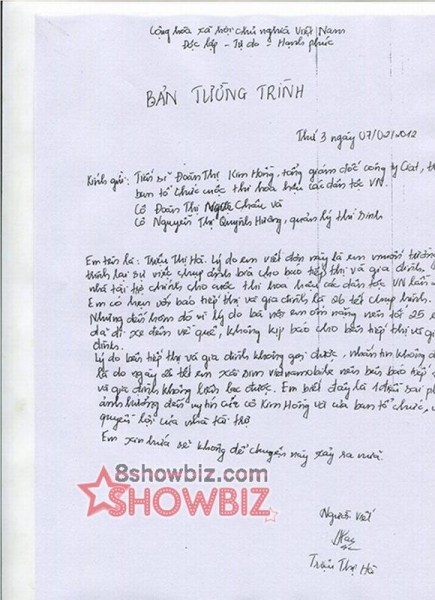 Cộng hòa xã hội chủ nghĩa Việt Nam
Độc lập - Tự do - Hạnh phúc
BẢN TƯỜNG TRÌNH
Thứ 3 ngày 07/02/2012
Kính gửi: Tiến sĩ Đoàn Thị Kim Hồng, tổng giám đốc công ty Ciat,
ban tổ chức cuộc thi hoa hậu các dân tộc VN.
Cô Đoàn Thị Ngọc Châu và
Cô Nguyễn Thị Quỳnh Hương, quản lý thí sinh
Em tên là: Triệu Thị Hà. Lý do em viết đơn này là em muốn tường
trình lại sự việc chụp ảnh bìa cho báo tiếp thị và gia đình,
nhà tài trợ chính cho cuộc thi hoa hậu các dân tộc VN lần
Em có hẹn với báo tiếp thị và gia đình là 26 tết chụp hình.
Nhưng đến hôm đó vì lý do bà nội em ốm nặng nên tối 25 e
đã đi xe đêm về quê, không kịp báo cho bên tiếp thị và gia
đình.
Lý do bên tiếp thị và gia đình không gọi được, nhắn tin không
là do ngày tết em xài sim vietnamobile nên bên báo tiếp
và gia đình không liên lạc được. Em biết đây là 1 điều sai
ảnh hưởng đến uy tín của cô Kim Hồng và của ban tổ chức,
quyền lợi của nhà tài trợ
Em xin hứa sẽ không để chuyện này xảy ra nữa.
8showbiz.com
SHOWBIZ
Người viết
Triệu Thị Hà